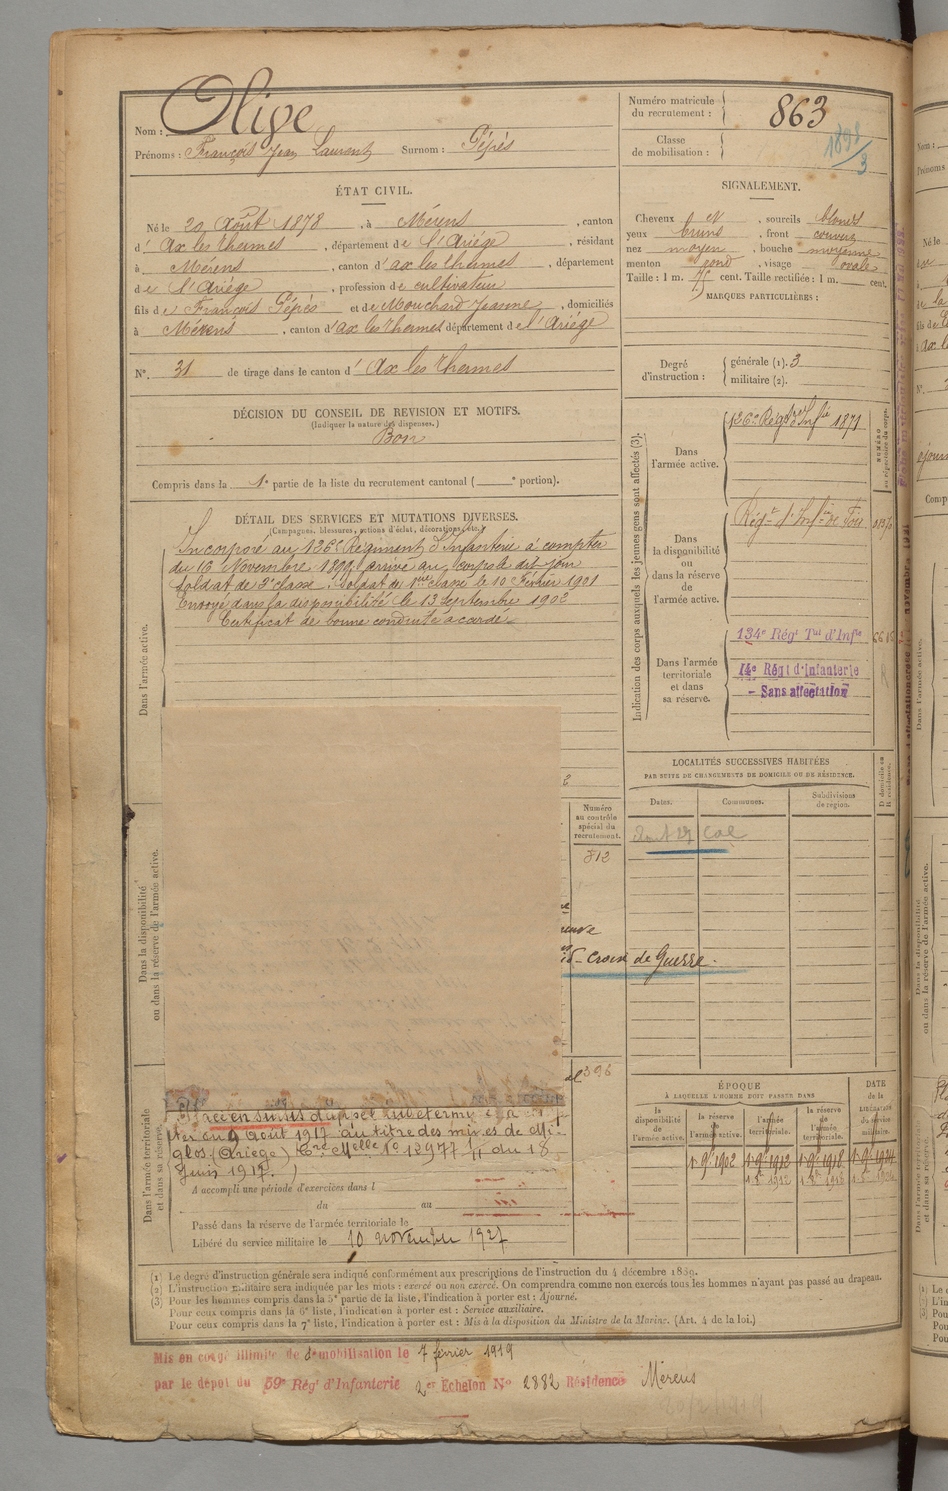 Nom : Olive
Prénoms : François Jean Laurent Surnom : Pépès
Numéro matricule du recrutement : 863
Classe de mobilisation : 1898/3
ÉTAT CIVIL.
Né le 20 Août 1878, à Mérens, canton
d'Ax les Thermes, département de l'Ariége, résidant
à Mérens, canton d'ax les thermes, département
de l'Ariége, profession de cultivateur
fils de François Pépès et de Mouchard Jeanne, domiciliés
à Mérens, canton d'ax les thermes département de l'Ariége
N°. 31 de tirage dans le canton d'Ax les Thermes
SIGNALEMENT.
Cheveux et, sourcils blonds
yeux bruns, front couvert
nez moyen, bouche moyenne
menton rond, visage ovale
Taille : 1 m. 75 cent. Taille rectifiée : 1 m. cent.
MARQUES PARTICULIÈRES :
Degré d'instruction :
générale (1). 3
militaire (2).
DÉCISION DU CONSEIL DE REVISION ET MOTIFS.
(Indiquer la nature des dispenses.)
Bon
Compris dans la 1e partie de la liste du recrutement cantonal ( e portion).
DÉTAIL DES SERVICES ET MUTATIONS DIVERSES.
(Campagnes, blessures, actions d'éclat, décorations, etc.)
Incorporé au 126e Régiment d'Infanterie à compter
du 16 Novembre 1899, arrivé au corps le dit jour
soldat de 2e classe. Soldat de 1ère classe le 10 Février 1901
Envoyé dans la disponibilité le 13 Septembre 1902
Certificat de bonne conduite accordé
Dans l'armée active.
Dans la disponibilité
ou dans la réserve de l'armée active.
Dans l'armée territoriale
et dans sa réserve.
Indication des corps auxquels les jeunes gens sont affectés (3).
Dans l'armée active.
126e Régt d'Infie 1871
NUMÉRO au répertoire du corps.
Dans la disponibilité ou dans la réserve de l'armée active.
Régt d'Infie de Foix
Dans l'armée territoriale et dans sa réserve.
134e Régt Tal d'Infie
14e Régt d'Infanterie
- Sans affectation
LOCALITÉS SUCCESSIVES HABITÉES
PAR SUITE DE CHANGEMENTS DE DOMICILE OU DE RÉSIDENCE.
Dates.
Communes.
Subdivisions de région.
D domicile ou R résidence.
Numéro au contrôle spécial du recrutement.
812
Croix de Guerre.
396
ÉPOQUE
À LAQUELLE L'HOMME DOIT PASSER DANS
la disponibilité de l'armée active.
la réserve de l'armée active.
l'armée territoriale.
la réserve de l'armée territoriale.
DATE de la LIBÉRATION du service militaire.
1-9bre 1902
1-9bre 1912
1-9bre 1918
1-9bre 1924
en sursis d'appel
9 août 1917 au titre des mines de Mi-
glos (Ariège) Cre Melle no 12977 du 18
Juin 1917.
A accompli une période d'exercices dans l
du au
Passé dans la réserve de l'armée territoriale le
Libéré du service militaire le 10 novembre 1927
(1) Le degré d'instruction générale sera indiqué conformément aux prescriptions de l'instruction du 4 décembre 1889.
(2) L'instruction militaire sera indiquée par les mots : exercé ou non exercé. On comprendra comme non exercés tous les hommes n'ayant pas passé au drapeau.
(3) Pour les hommes compris dans la 5e partie de la liste, l'indication à porter est : Ajourné.
Pour ceux compris dans la 6e liste, l'indication à porter est : Service auxiliaire.
Pour ceux compris dans la 7e liste, l'indication à porter est : Mis à la disposition du Ministre de la Marine. (Art. 4 de la loi.)
Mis en congé illimité de démobilisation le 7 février 1919
par le dépôt du 59e Régt d'Infanterie 2er Echelon N° 2882 Résidence Mérens